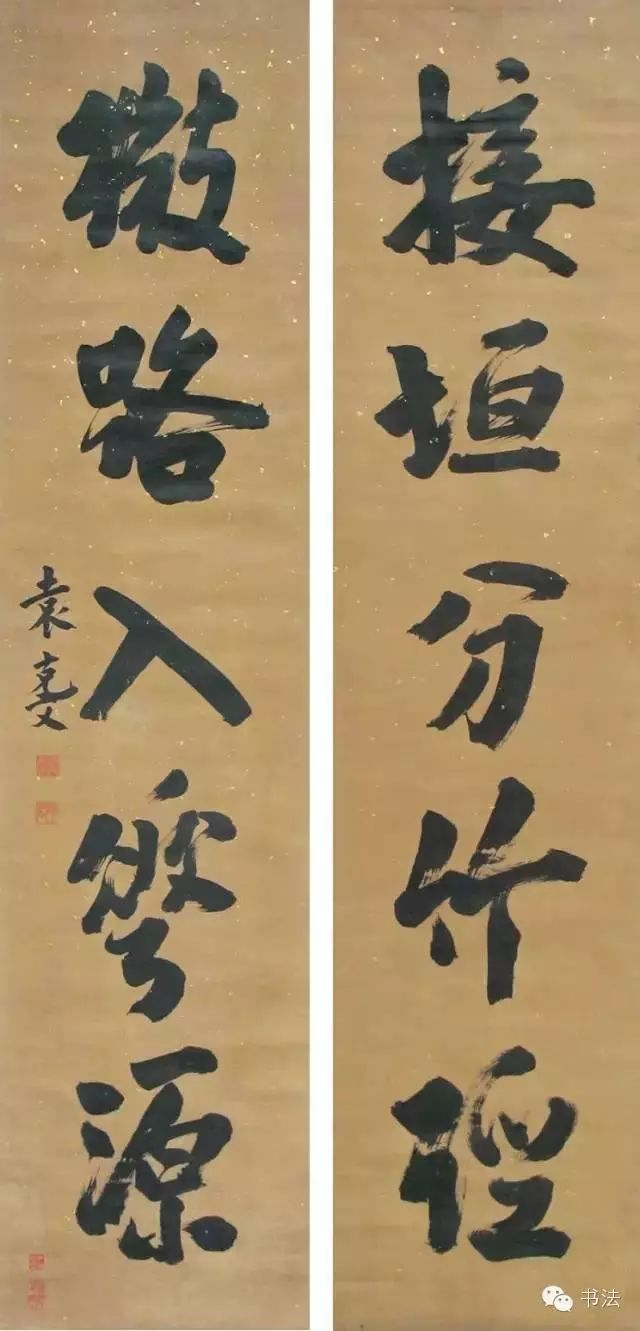 接垣分竹徑
微路入𠌶源
袁克文
书法